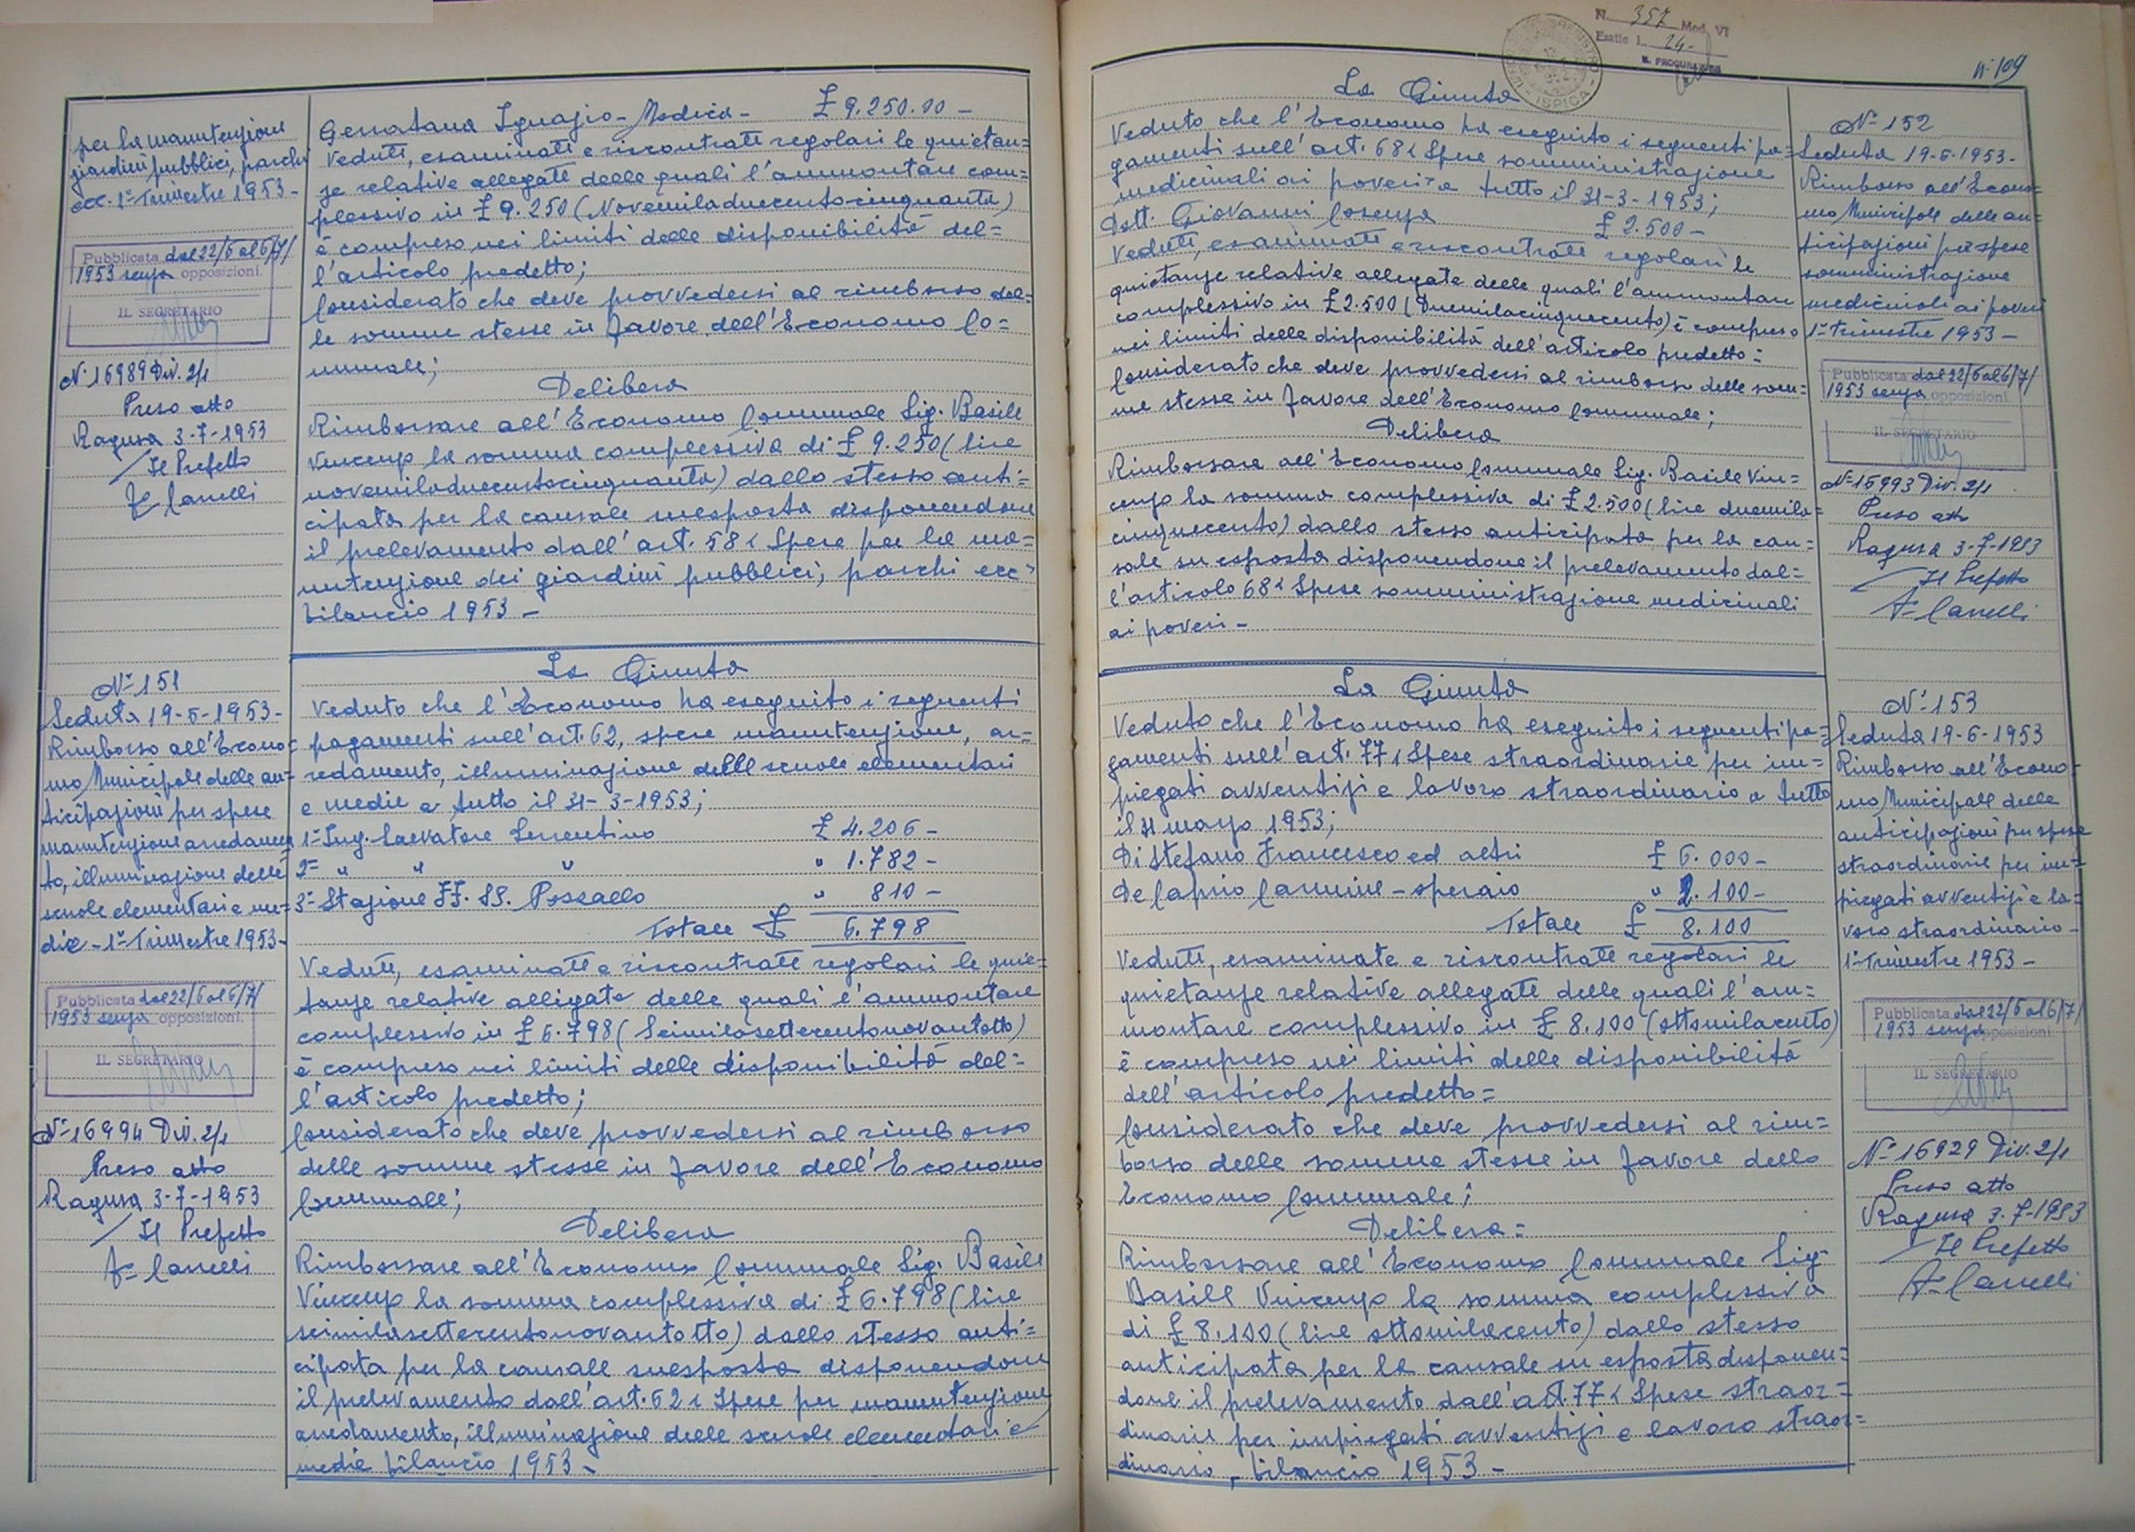 per la manutenzione
giardini pubblici, parchi
ecc. 1° Trimestre 1953-
Pubblicata dal 22/6 al 6/7/
1953 senza opposizioni.
IL SEGRETARIO
N° 16989 Div. 2/1
Preso atto
Ragusa 3-7-1953
Il Prefetto
N° 151
Seduta 19-6-1953-
Rimborso all'Econo=
mo Municipale delle an=
ticipazioni per spese
manutenzione arredamen
to, illuminazione delle
scuole elementari e me=
die - 1° Trimestre 1953-
Pubblicata dal 22/6 al 6/7/
1953 senza opposizioni.
IL SEGRETARIO
N° 16994 Div. 2/1
Preso atto
Ragusa 3-7-1953
Il Prefetto
Ignazio - Modica - £ 9.250.00 -
Vedute, esaminate e riscontrate regolari le quietan=
ze relative allegate delle quali l'ammontare com=
plessivo in £ 9.250 (Novemiladuecentocinquanta)
è compreso nei limiti delle disponibilità del=
l'articolo predetto;
Considerato che deve provvedersi al rimborso del=
le somme stesse in favore dell'Economo Co=
munale;
Delibera
Rimborsare all'Economo Comunale Sig. Basile
Vincenzo la somma complessiva di £ 9.250 (lire
novemiladuecentocinquanta) dallo stesso anti=
cipata per la causale suesposta disponendone
il prelevamento dall'art. 58 < Spese per la ma=
nutenzione dei giardini pubblici, parchi ecc>
bilancio 1953 -
La Giunta
Veduto che l'Economo ha eseguito i seguenti
pagamenti sull'art. 62, spese manutenzione, ar=
redamento, illuminazione delle scuole elementari
e medie a tutto il 31-3-1953;
1° Ing. Salvatore Sorrentino £ 4.206 -
2° " " " " 1.782 -
3° Stazione FF. SS. Pozzallo " 810 -
Totale £ 6.798
Vedute, esaminate e riscontrate regolari le quie=
tanze relative alligate delle quali l'ammontare
complessivo in £ 6.798 (Seimilasettecentonovantotto)
è compreso nei limiti delle disponibilità del=
l'articolo predetto;
Considerato che deve provvedersi al rimborso
delle somme stesse in favore dell'Economo
Comunale;
Delibera
Rimborsare all'Economo Comunale Sig. Basile
Vincenzo la somma complessiva di £ 6.798 (lire
seimilasettecentonovantotto) dallo stesso anti=
cipata per la causale suesposta disponendone
il prelevamento dall'art. 62 < Spese per manutenzione
arredamento, illuminazione delle scuole elementari e
medie bilancio 1953 -
N. 352 Mod. VI
Esatte L. 24-
IL PROCURATORE
ISPICA
N° 109
La Giunta
Veduto che l'Economo ha eseguito i seguenti pa=
gamenti sull'art. 68 < Spese somministrazione
medicinali ai poveri> a tutto il 31-3-1953;
Dott. Giovanni Cosenza £ 2.500 -
Vedute, esaminate e riscontrate regolari le
quietanze relative allegate delle quali l'ammontare
complessivo in £ 2.500 (Duemilacinquecento) è compreso
nei limiti delle disponibilità dell'articolo predetto:
Considerato che deve provvedersi al rimborso delle som=
me stesse in favore dell'Economo Comunale;
Delibera
Rimborsare all'Economo Comunale Sig. Basile Vin=
cenzo la somma complessiva di £ 2.500 (lire duemila=
cinquecento) dallo stesso anticipata per la cau=
sale su esposta disponendone il prelevamento dal=
l'articolo 68 < Spese somministrazione medicinali
ai poveri -
La Giunta
Veduto che l'Economo ha eseguito i seguenti pa=
gamenti sull'art. 77 < Spese straordinarie per im=
piegati avventizi e lavoro straordinario a tutto
il 31 marzo 1953;
Di Stefano Francesco ed altri £ 6.000 -
De Caprio Carmine - operaio " 2.100 -
Totale £ 8.100
Vedute, esaminate e riscontrate regolari le
quietanze relative allegate delle quali l'am=
montare complessivo in £ 8.100 (ottomilacento)
è compreso nei limiti delle disponibilità
dell'articolo predetto =
Considerato che deve provvedersi al rim=
borso delle somme stesse in favore dello
Economo Comunale;
Delibera =
Rimborsare all'Economo Comunale Sig.
Basile Vincenzo la somma complessiva
di £ 8.100 (lire ottomilacento) dallo stesso
anticipata per la causale su esposta disponen=
done il prelevamento dall'art. 77 < Spese straor=
dinarie per impiegati avventizi e lavoro straor=
dinario, bilancio 1953 -
N° 152
Seduta 19-6-1953-
Rimborso all'Econo=
mo Municipale delle an=
ticipazioni per spese
somministrazione
medicinali ai poveri
1° Trimestre 1953 -
Pubblicata dal 22/6 al 6/7/
1953 senza opposizioni.
IL SEGRETARIO
N° 16993 Div. 2/1
Preso atto
Ragusa 3-7-1953
Il Prefetto
N° 153
Seduta 19-6-1953
Rimborso all'Econo=
mo Municipale delle
anticipazioni per spese
straordinarie per im=
piegati avventizi e la=
voro straordinario -
1° Trimestre 1953 -
Pubblicata dal 22/6 al 6/7/
1953 senza opposizioni.
IL SEGRETARIO
N° 16929 Div. 2/1
Preso atto
Ragusa 3-7-1953
Il Prefetto